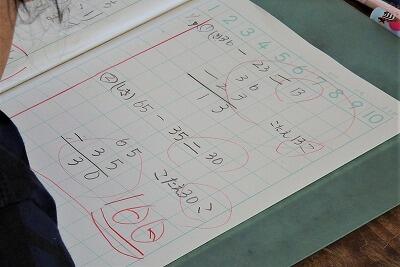 1 2 3 4 5 6 7 8 9 10
① (しき) 36 - 23 = 13
36
- 23
13
こたえ 13こ
② (しき) 65 - 35 = 30
65
- 35
30
こたえ 30こ
100